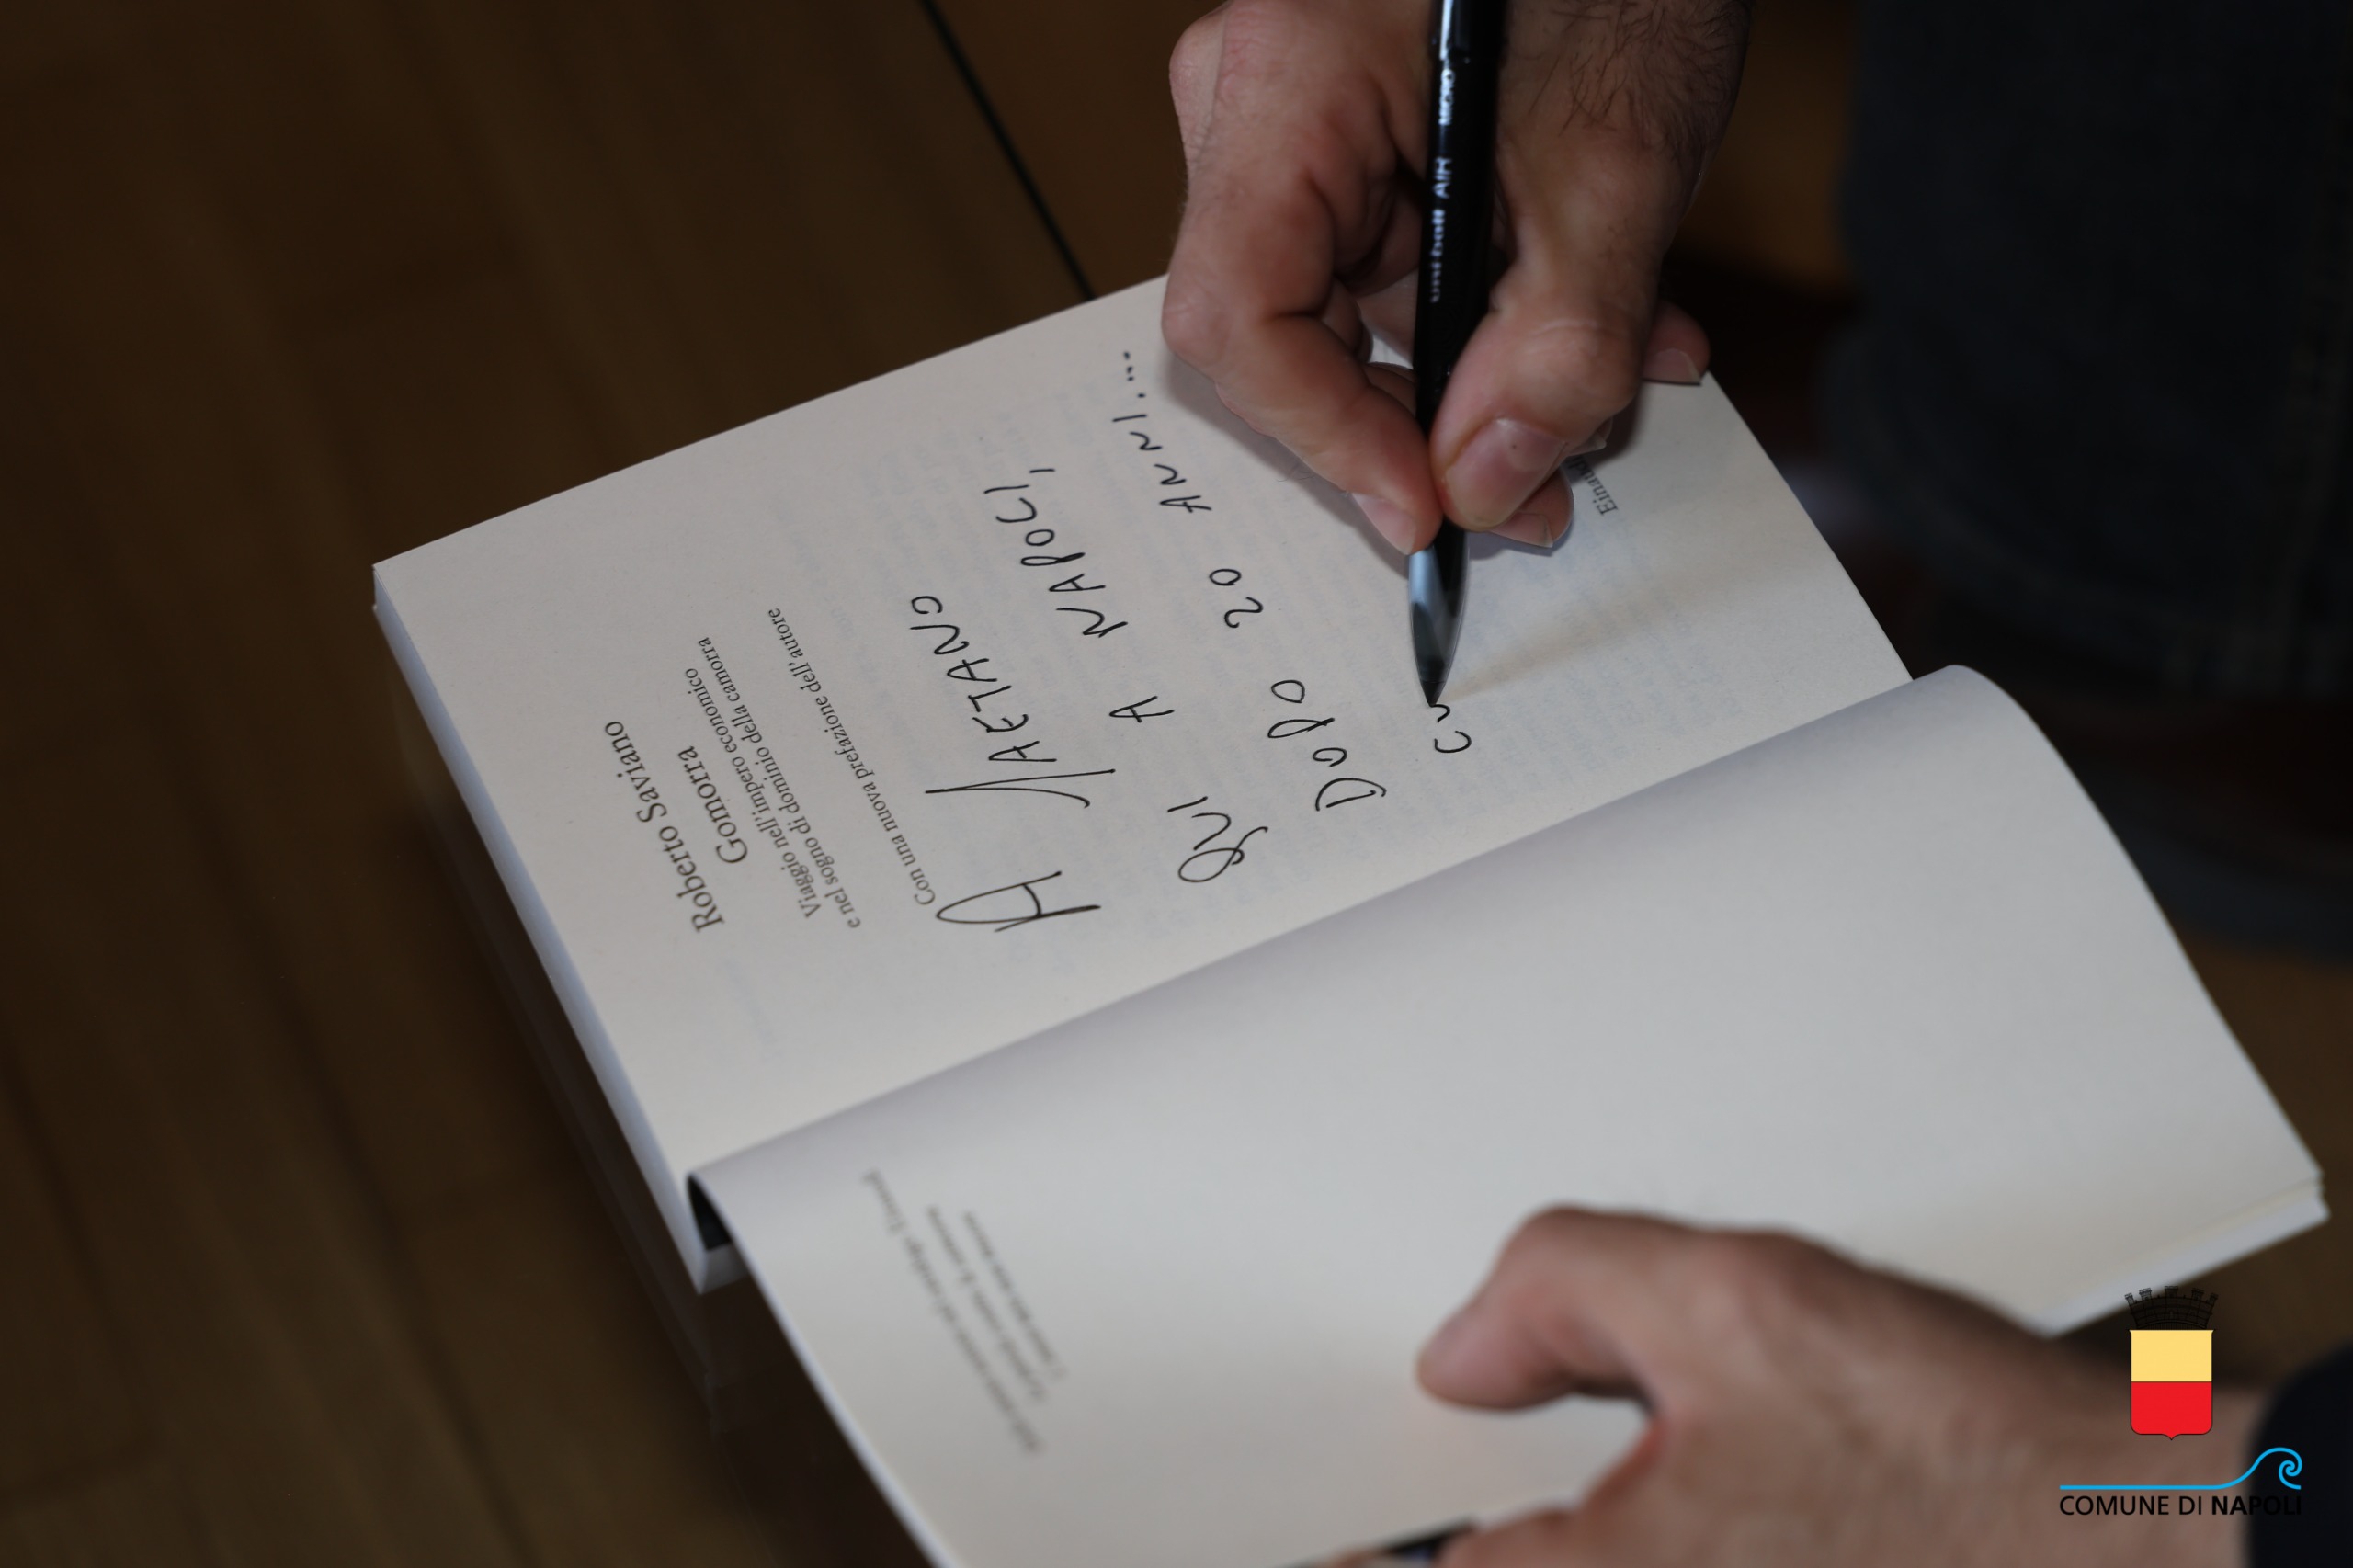 Roberto Saviano
Gomorra
Viaggio nell'impero economico
e nel sogno di dominio della camorra
Con una nuova prefazione dell'autore
A GAETANO
QUI A NAPOLI,
DOPO 20 ANNI....
CU
uni-ball AIR MICRO
COMUNE DI NAPOLI